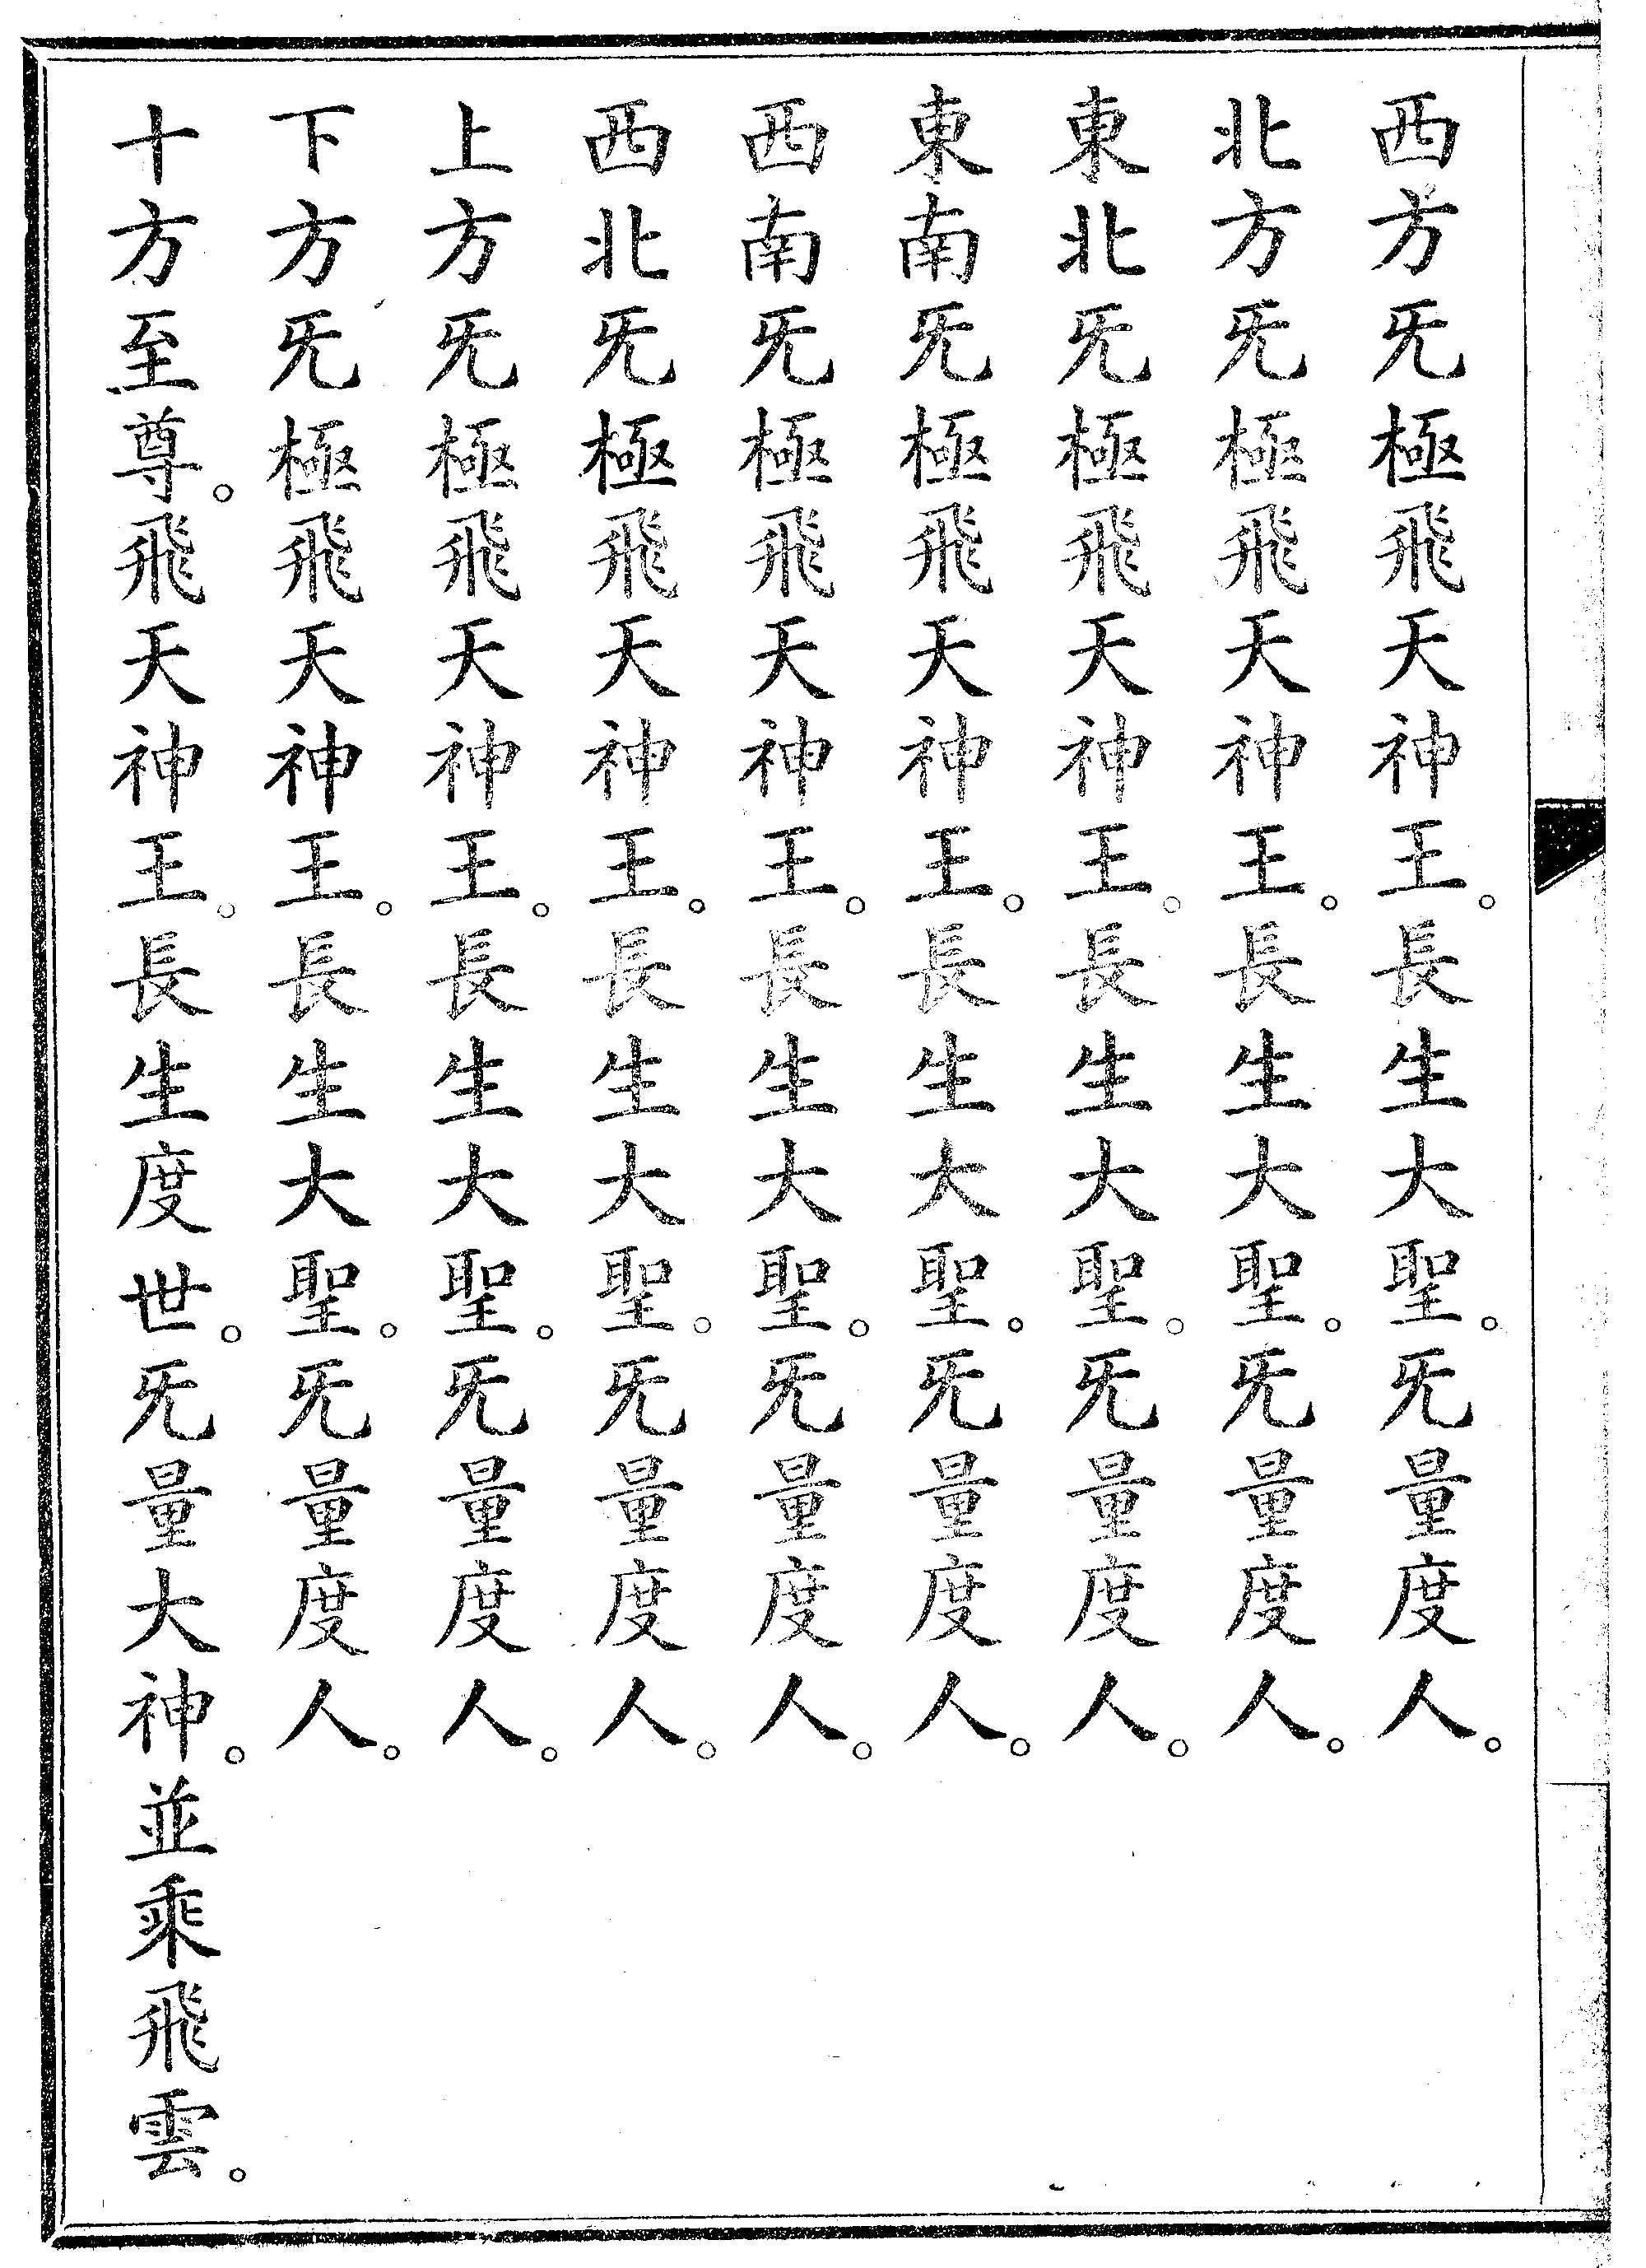 西方旡極飛天神王。長生大聖。旡量度人。
北方旡極飛天神王。長生大聖。旡量度人。
東北旡極飛天神王。長生大聖。旡量度人。
東南旡極飛天神王。長生大聖。旡量度人。
西南旡極飛天神王。長生大聖。旡量度人。
西北旡極飛天神王。長生大聖。旡量度人。
上方旡極飛天神王。長生大聖。旡量度人。
下方旡極飛天神王。長生大聖。旡量度人。
十方至尊。飛天神王。長生度世。旡量大神。並乘飛雲。